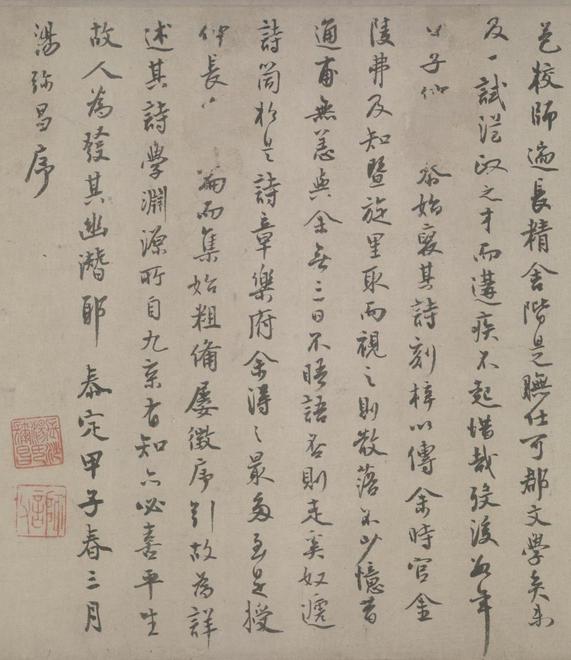 邑校師迤長精舍階是膴仕可郡文學矣未
及一試從政之才而遘疾不起惜哉歿後數年
子仙 始裒其詩刻梓以傳余時官金
陵弗及知暨旋里取而視之則散落不少憶昔
通甫無恙與余無三日不晤語否則走奚奴遞
詩筒於是詩章樂府余得之最多至是授
仲長 而集始粗備屢徵序引故為詳
述其詩學淵源所自九京有知亦必喜平生
故人為發其幽潛耶 泰定甲子春三月
湯弥昌序